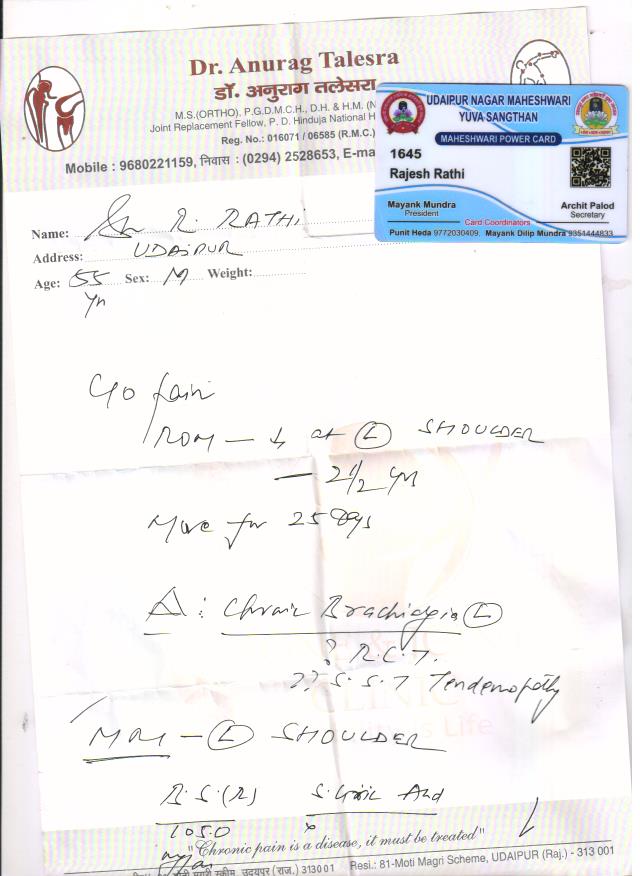 Dr. Anurag Talesra
डॉ. अनुराग तलेसरा
M.S.(ORTHO), P.G.D.M.C.H., D.H. & H.M. (N
Joint Replacement Fellow, P. D. Hinduja National H
Reg. No.: 016071 / 06585 (R.M.C.)
Mobile : 9680221159, निवास : (0294) 2528653, E-ma
UDAIPUR NAGAR MAHESHWARI
YUVA SANGTHAN
MAHESHWARI POWER CARD
1645
Rajesh Rathi
Mayank Mundra
President
Archit Palod
Secretary
Card Coordinators
Punit Heda 9772030409, Mayank Dilip Mundra 9351444833
Name: R. RATHI
Address: UDAIPUR
Age: 55 yr Sex: M Weight:
C/o Pain
ROM - ↓ at (L) SHOULDER
- 2 1/2 yrs
More for 25 days
Δ: Chronic Brachialgia (L)
? R.C.T.
?? S.S.T Tendenopathy
MRI - (L) SHOULDER
B.S.(R) S. Uric Acid
"Chronic pain is a disease, it must be treated"
स्कीम, उदयपुर (राज.) 313001 Resi.: 81-Moti Magri Scheme, UDAIPUR (Raj.) - 313 001